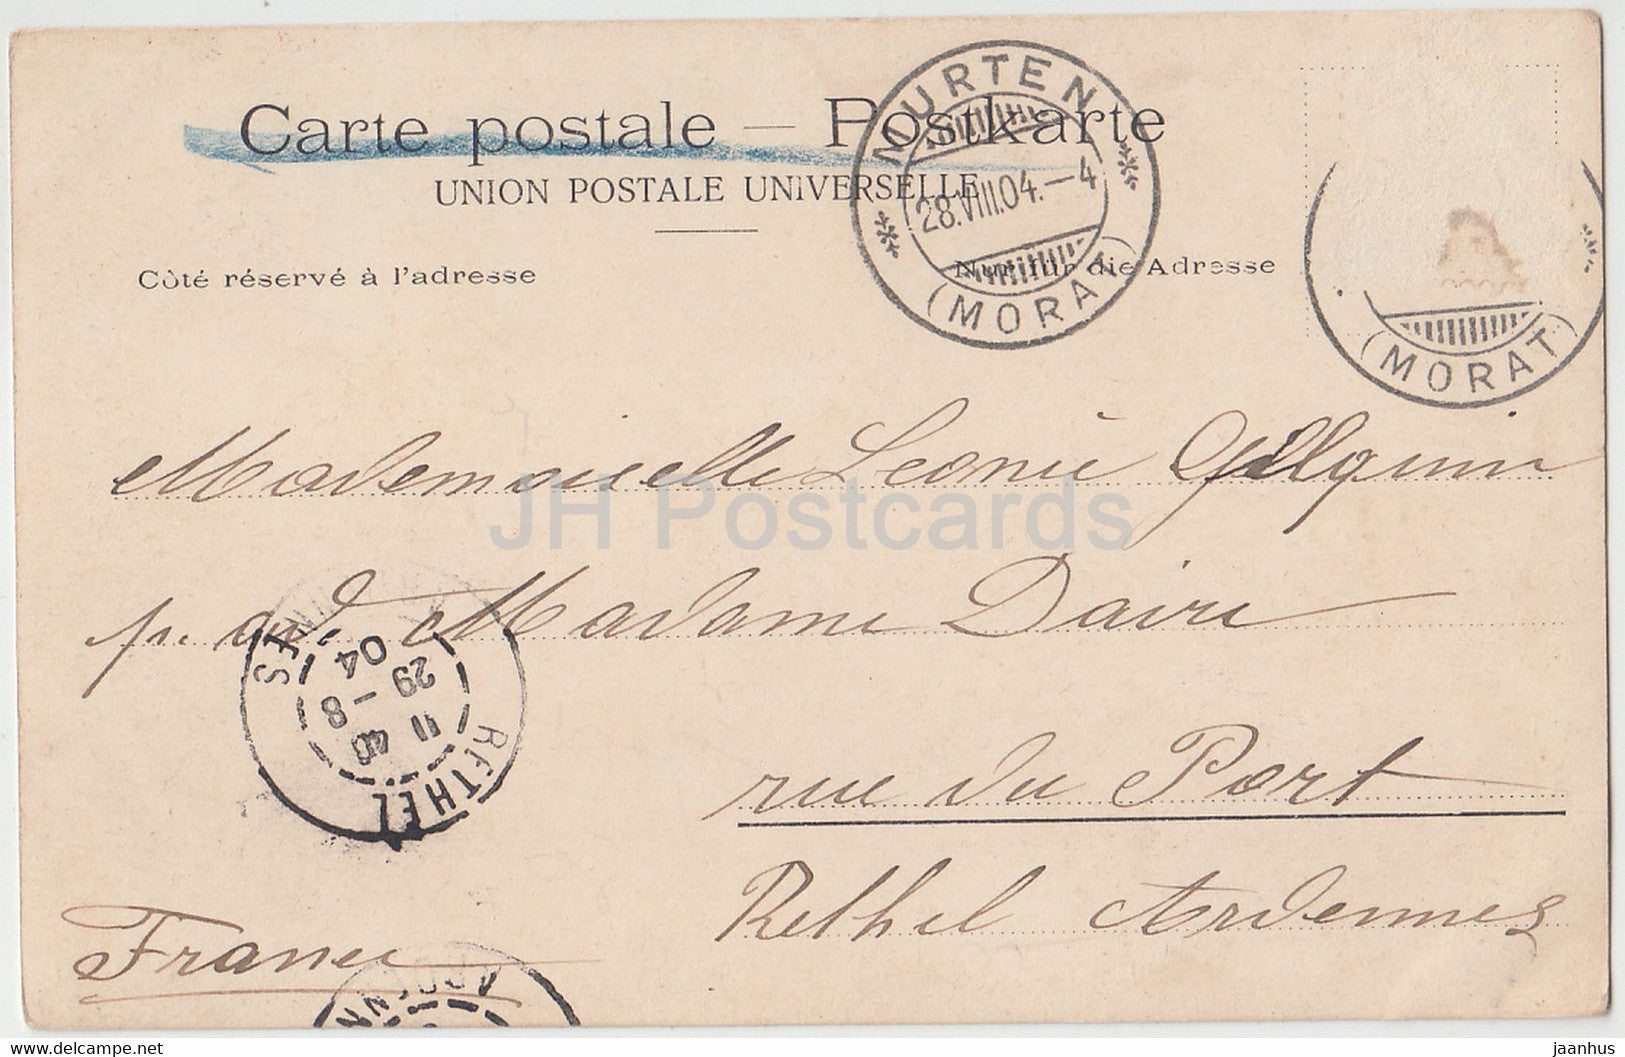 Carte postale — Postkarte
UNION POSTALE UNIVERSELLE
Côté réservé à l'adresse
Nur für die Adresse
MURTEN
28.VIII.04.–4
(MORAT)
(MORAT)
Mademoiselle Léonie Gilquin
JH Postcards
p. ad. Madame Daire
rue du Port
Rethel Ardennes
France
RETHEL
11 40
29 - 8
04
ARDENNES
ARDENN
delcampe.net
jaanhus